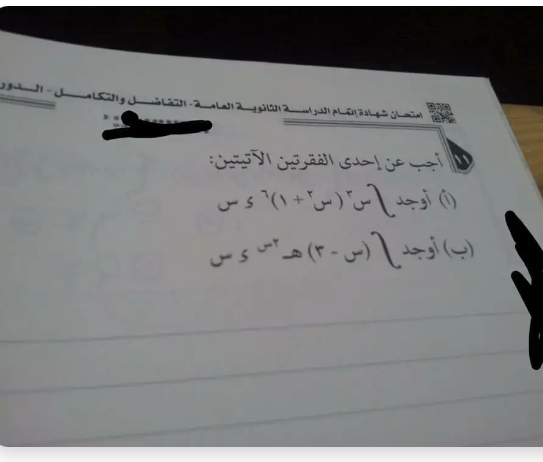 امتحان شهادة إتمام الدراسة الثانوية العامة - التفاضل والتكامل - الدور
١٦ أجب عن إحدى الفقرتين الآتيتين:
(أ) أوجد ∫ س³ (س² + ١)⁶ ء س
(ب) أوجد ∫ (س - ٣) هـ²س ء س